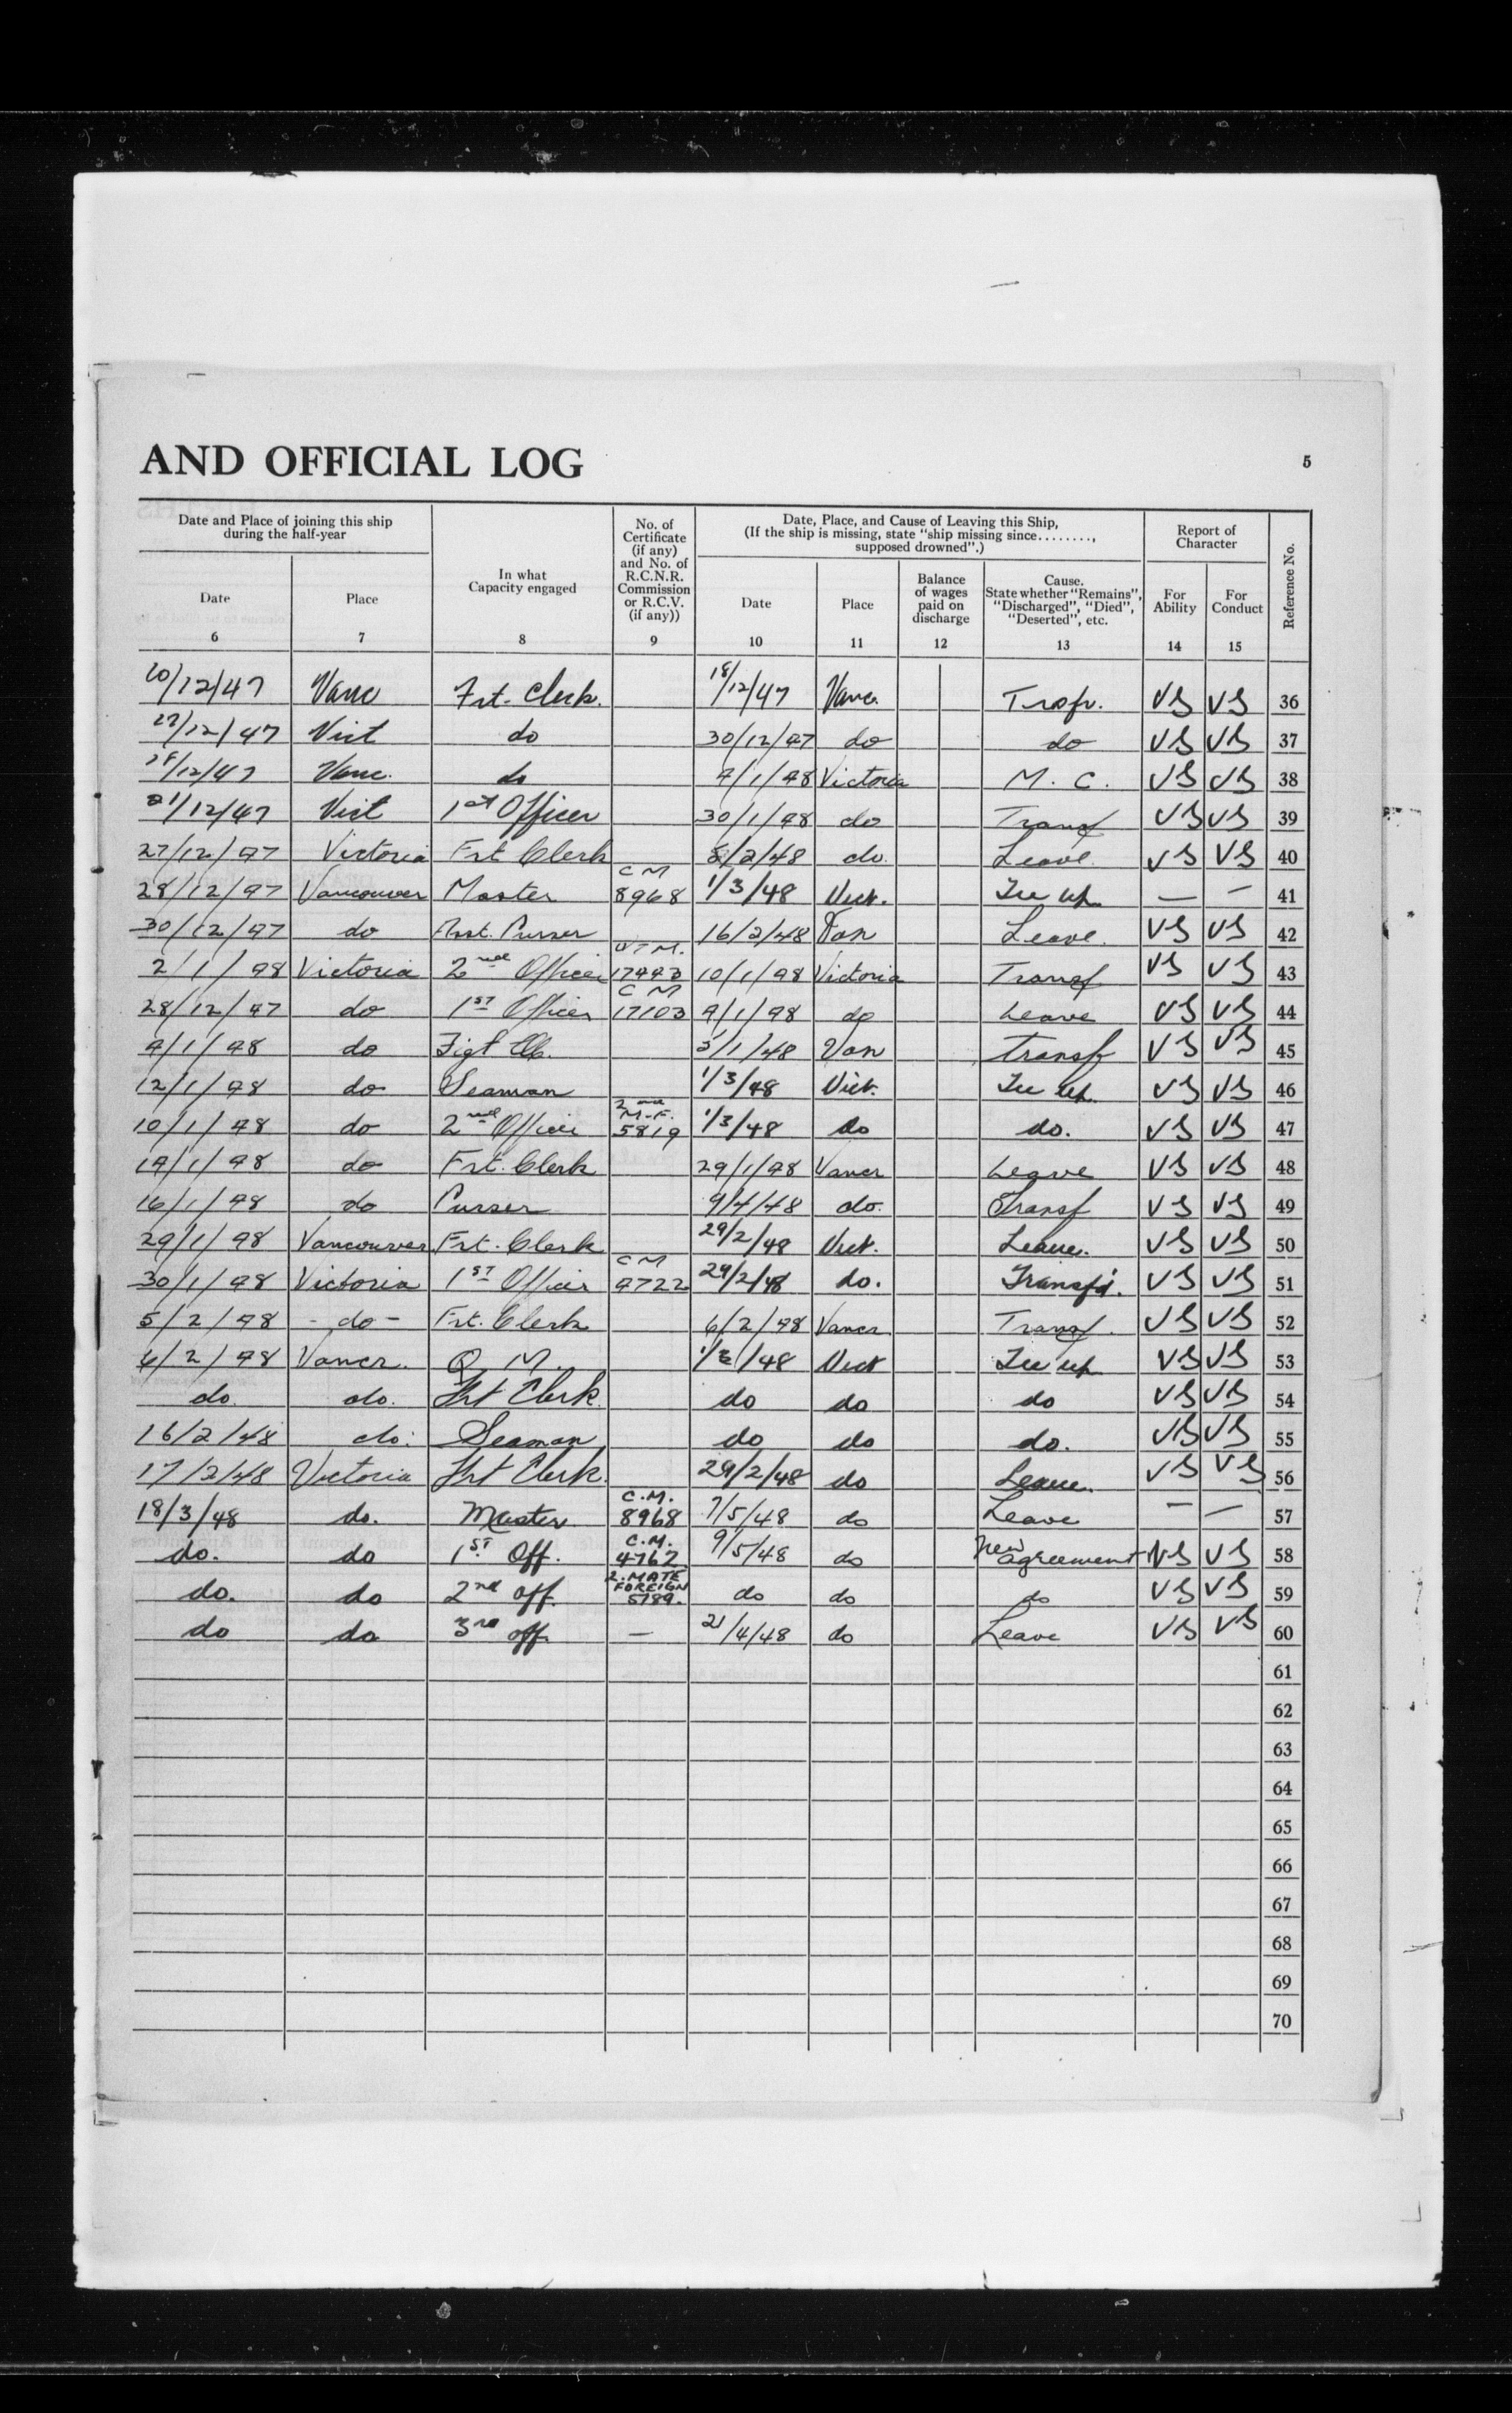 AND OFFICIAL LOG 5
Date and Place of joining this ship during the half-year
In what Capacity engaged
No. of Certificate (if any) and No. of R.C.N.R. Commission or R.C.V. (if any))
Date, Place, and Cause of Leaving this Ship, (If the ship is missing, state "ship missing since........, supposed drowned".)
Report of Character
Reference No.
Date Place Date Place
Balance of wages paid on discharge
Cause. State whether "Remains", "Discharged", "Died", "Deserted", etc.
For Ability
For Conduct
6 7 8 9 10 11 12 13 14 15
20/12/47 Vanc Frt. Clerk. 18/12/47 Vanc. Trsfr. VG VG 36
/12/47 Vict do 30/12/47 do do VG VG 37
/12/47 Vanc. do 4/1/48 Victoria M. C. VG VG 38
21/12/47 Vict 1st Officer 30/1/48 do Transf VG VG 39
27/12/47 Victoria Frt Clerk 8/2/48 do. Leave. VG VG 40
28/12/47 Vancouver Master CM 8968 1/3/48 Vict. Tie up — — 41
30/12/47 do Asst. Purser 16/2/48 Van Leave. VG VG 42
2/1/48 Victoria 2nd Officer 17443 10/1/48 Victoria Transf VG VG 43
28/12/47 do 1st Officer CM 17103 9/1/48 do Leave VG VG 44
9/1/48 do /1/48 Van Transf VG VG 45
12/1/48 do Seaman 1/3/48 Vict. Tie up. VG VG 46
10/1/48 do 2nd Officer 2nd M.F. 5819 1/3/48 do do. VG VG 47
14/1/48 do Frt. Clerk 29/1/48 Vancr Leave VG VG 48
16/1/48 do Purser 9/4/48 do. Transf VG VG 49
29/1/48 Vancouver Frt. Clerk 29/2/48 Vict. Leave. VG VG 50
30/1/48 Victoria 1st Officer CM 9722 29/2/48 do. Transfd. VG VG 51
5/2/48 - do - Frt. Clerk 6/2/48 Vancr Transf. VG VG 52
6/2/48 Vancr. Q. M. 1/3/48 Vict Tie up VG VG 53
do. do. Frt Clerk. do do do VG VG 54
16/2/48 do. Seaman do do do. VG VG 55
17/2/48 Victoria Frt Clerk. 29/2/48 do Leave. VG VG 56
18/3/48 do. Master C.M. 8968 7/5/48 do Leave — — 57
do. do 1st Off. C.M. 4762 9/5/48 do New agreement VG VG 58
do. do 2nd off. 2. MATE FOREIGN 5789. do do do VG VG 59
do do 3rd off. — 21/4/48 do Leave VG VG 60
61
62
63
64
65
66
67
68
69
70